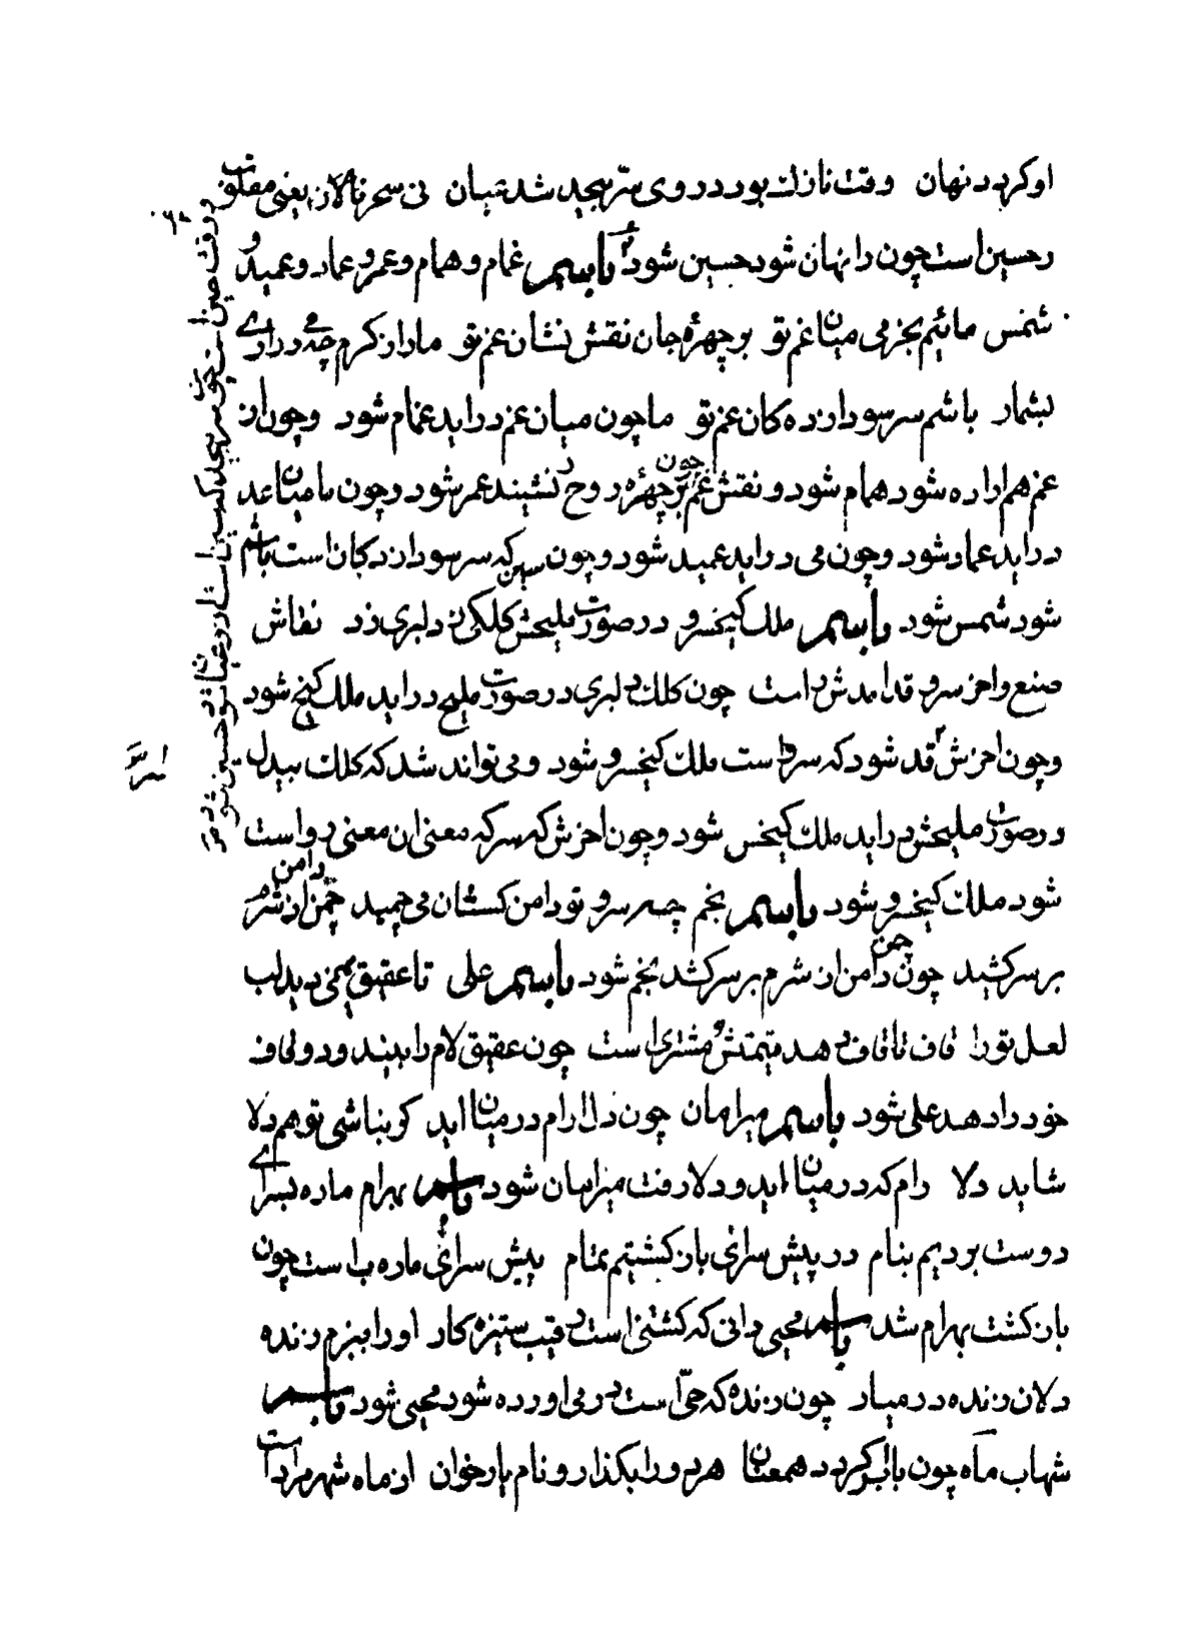 او کرد نهان وقت نازک بود در روی سر پیچید شد عیان نی سحر نالان یعنی مقلوب
رحسین است چون را نهان شود حسین شود باسم غمام و همام و عمر و عماد و عمید و
شمس مائیم بجز می میان غم تو بر چهره جان نقش نشان غم تو ما را ز کرم چه در اری
بشمار باشم سر سودا زده کان غم تو ما چون میان غم در اید غمام شود و چون از
غم هم اراده شود همام شود و نقش غم چون بر چهره روح نشیند عمر شود و چون ما میان عد
در اید عماد شود و چون می در اید عمید شود و چون سین که سر سودا زدکان است باشم
شود شمس شود باسم ملک کیخسرو در صورت ملیحش کلکی ز دلبری زد نقاش
صنع واخر سرو قد امدش راست چون کلک دلبری در صورت ملیح در اید ملک کیخ شود
وچون اخرش قد شود که سر و است ملک کیخسرو شود و می تواند شد که کلک بیدل
در صورت ملیحش در اید ملک کیخس شود وچون اخرش که سر که معنی ان معنی رو است
شود ملک کیخسرو شود باسم نجم چه سرو تو دامن کشان می چمید چمن دامن از شرم
بر سر کشید چون چمن دامن از شرم بر سر کشد نجم شود باسم علی تا عقیق یمنی دید لب
لعل تو را قاف تا قاف دهد قیمتش و مشتری است چون عقیق لام را بیند و دو قاف
خود را دهد علی شود باسم میرامان چون دلارام در میان اید کو نباشی تو هم دلا
شاید دلا رام که در میان اید و دلا رفت میرامان شود باسم بهرام ما ره بسرای
دوست بردیم بنام در پیش سرای باز کشتیم تمام پیش سرای ما ره با است چون
باز کشت بهرام شد باسم محیی دانی که کشتنی است رقیب ستیزه کار او را ببزم زنده
دلان زنده در میار چون زنده که حی است در می اورده شود محیی شود باسم
شهاب ماه چون با ابر کردد همعنان هر دو را بکذار و نام یار خوان از ماه شهر مراد است